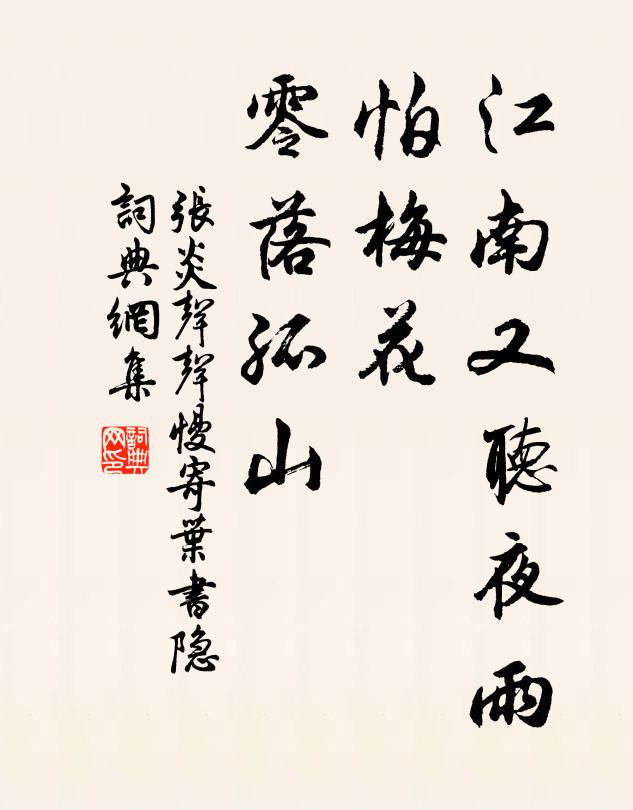 江南又聽夜雨
怕梅花
零落孤山
張炎聲聲慢寄葉書隐
詞典網集
詞典
网印